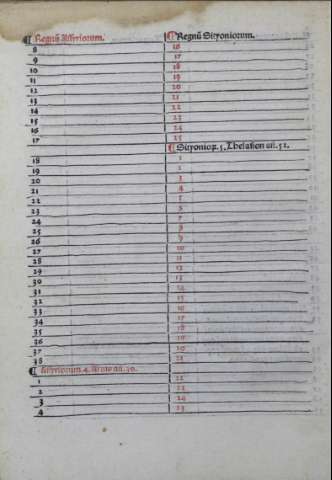 Regnū Assyriorum. Regnū Sicyoniorum.
8 16
9 17
10 18
11 19
12 20
13 21
14 22
15 23
16 24
17 25
Sicyonioꝝ. 5. Thelasion an. 52.
18 1
19 2
20 3
21 4
22 5
23 6
24 7
25 8
26 9
27 10
28 11
29 12
30 13
31 14
32 15
33 16
34 17
35 18
36 19
37 20
38 21
Assyriorum. 4. an. 30.
1 22
2 23
3 24
4 25